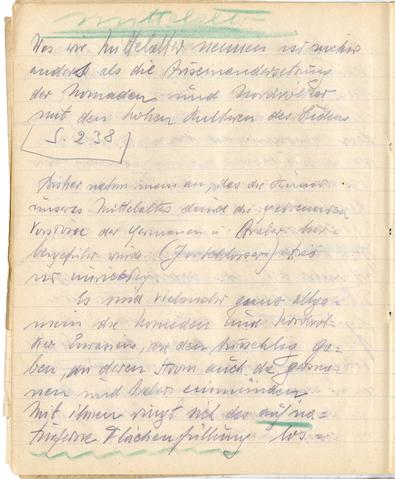 Mittelalter
Was wir Mittelalter nennen ist nichts
anders als die Auseinandersetzung
der Nomaden und Nordvölker
mit den hohen Kulturen des Südens
S. 238
Bisher nahm man an, das die Kunst
unseres Mittelalters durch die getrennten
Vorstösse der Germanen u. Araber her-
beigeführt würde (Jos. Schlosser) dies
ist unrichtig
Es sind vielmehr ganz allge-
mein die Nomaden und Nordvöl-
ker Eurasiens, die den Ausschlag ga-
ben, in deren Strom auch die Germa-
nen und Araber einmünden
Mit ihnen ringt sich das auf
Flächenfüllung los-